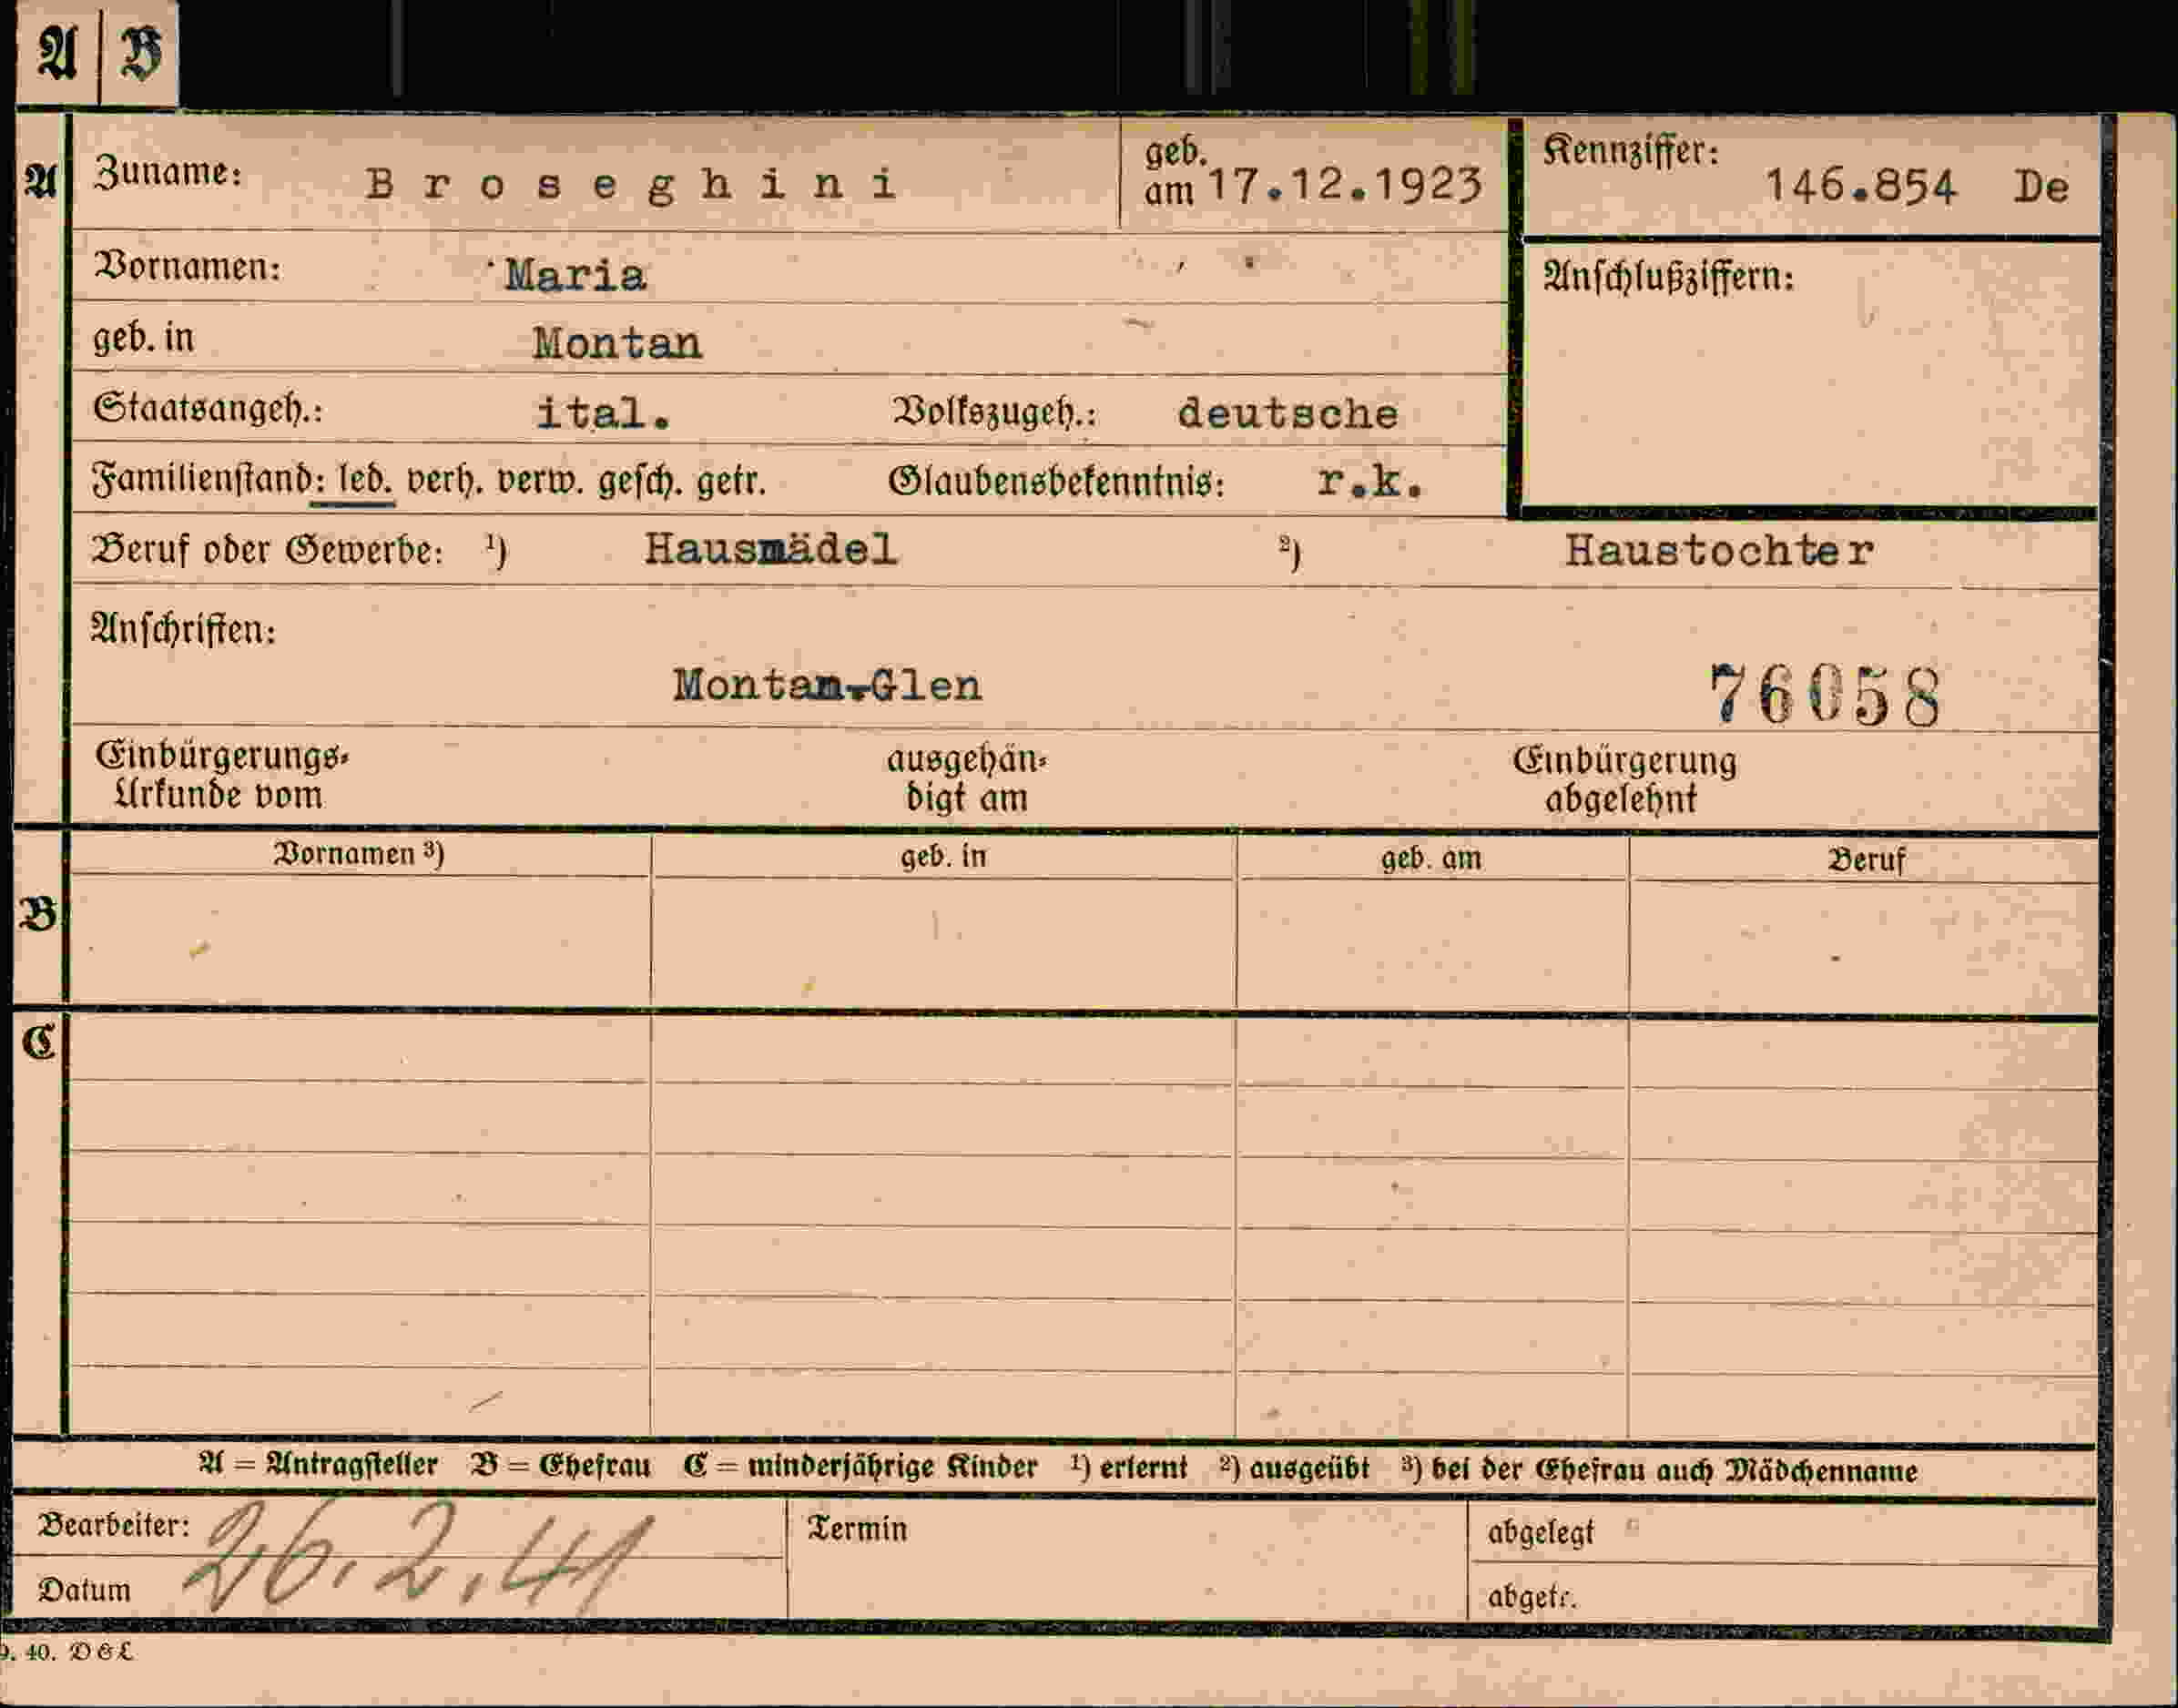 A B
A Zuname: Broseghini geb. am 17.12.1923 Kennziffer: 146.854 De
Vornamen: Maria Anschlußziffern:
geb. in Montan
Staatsangeh.: ital. Volkszugeh.: deutsche
Familienstand: led. verh. verw. gesch. getr. Glaubensbekenntnis: r.k.
Beruf oder Gewerbe: ¹) Hausmädel ²) Haustochter
Anschriften:
Montan-Glen 76058
Einbürgerungs- ausgehän- Einbürgerung
Urkunde vom digt am abgelehnt
Vornamen ³) geb. in geb. am Beruf
B
C
A = Antragsteller B = Ehefrau C = minderjährige Kinder ¹) erlernt ²) ausgeübt ³) bei der Ehefrau auch Mädchenname
Bearbeiter: Termin abgelegt
26.2.41
Datum abgetr.
9. 40. D&L